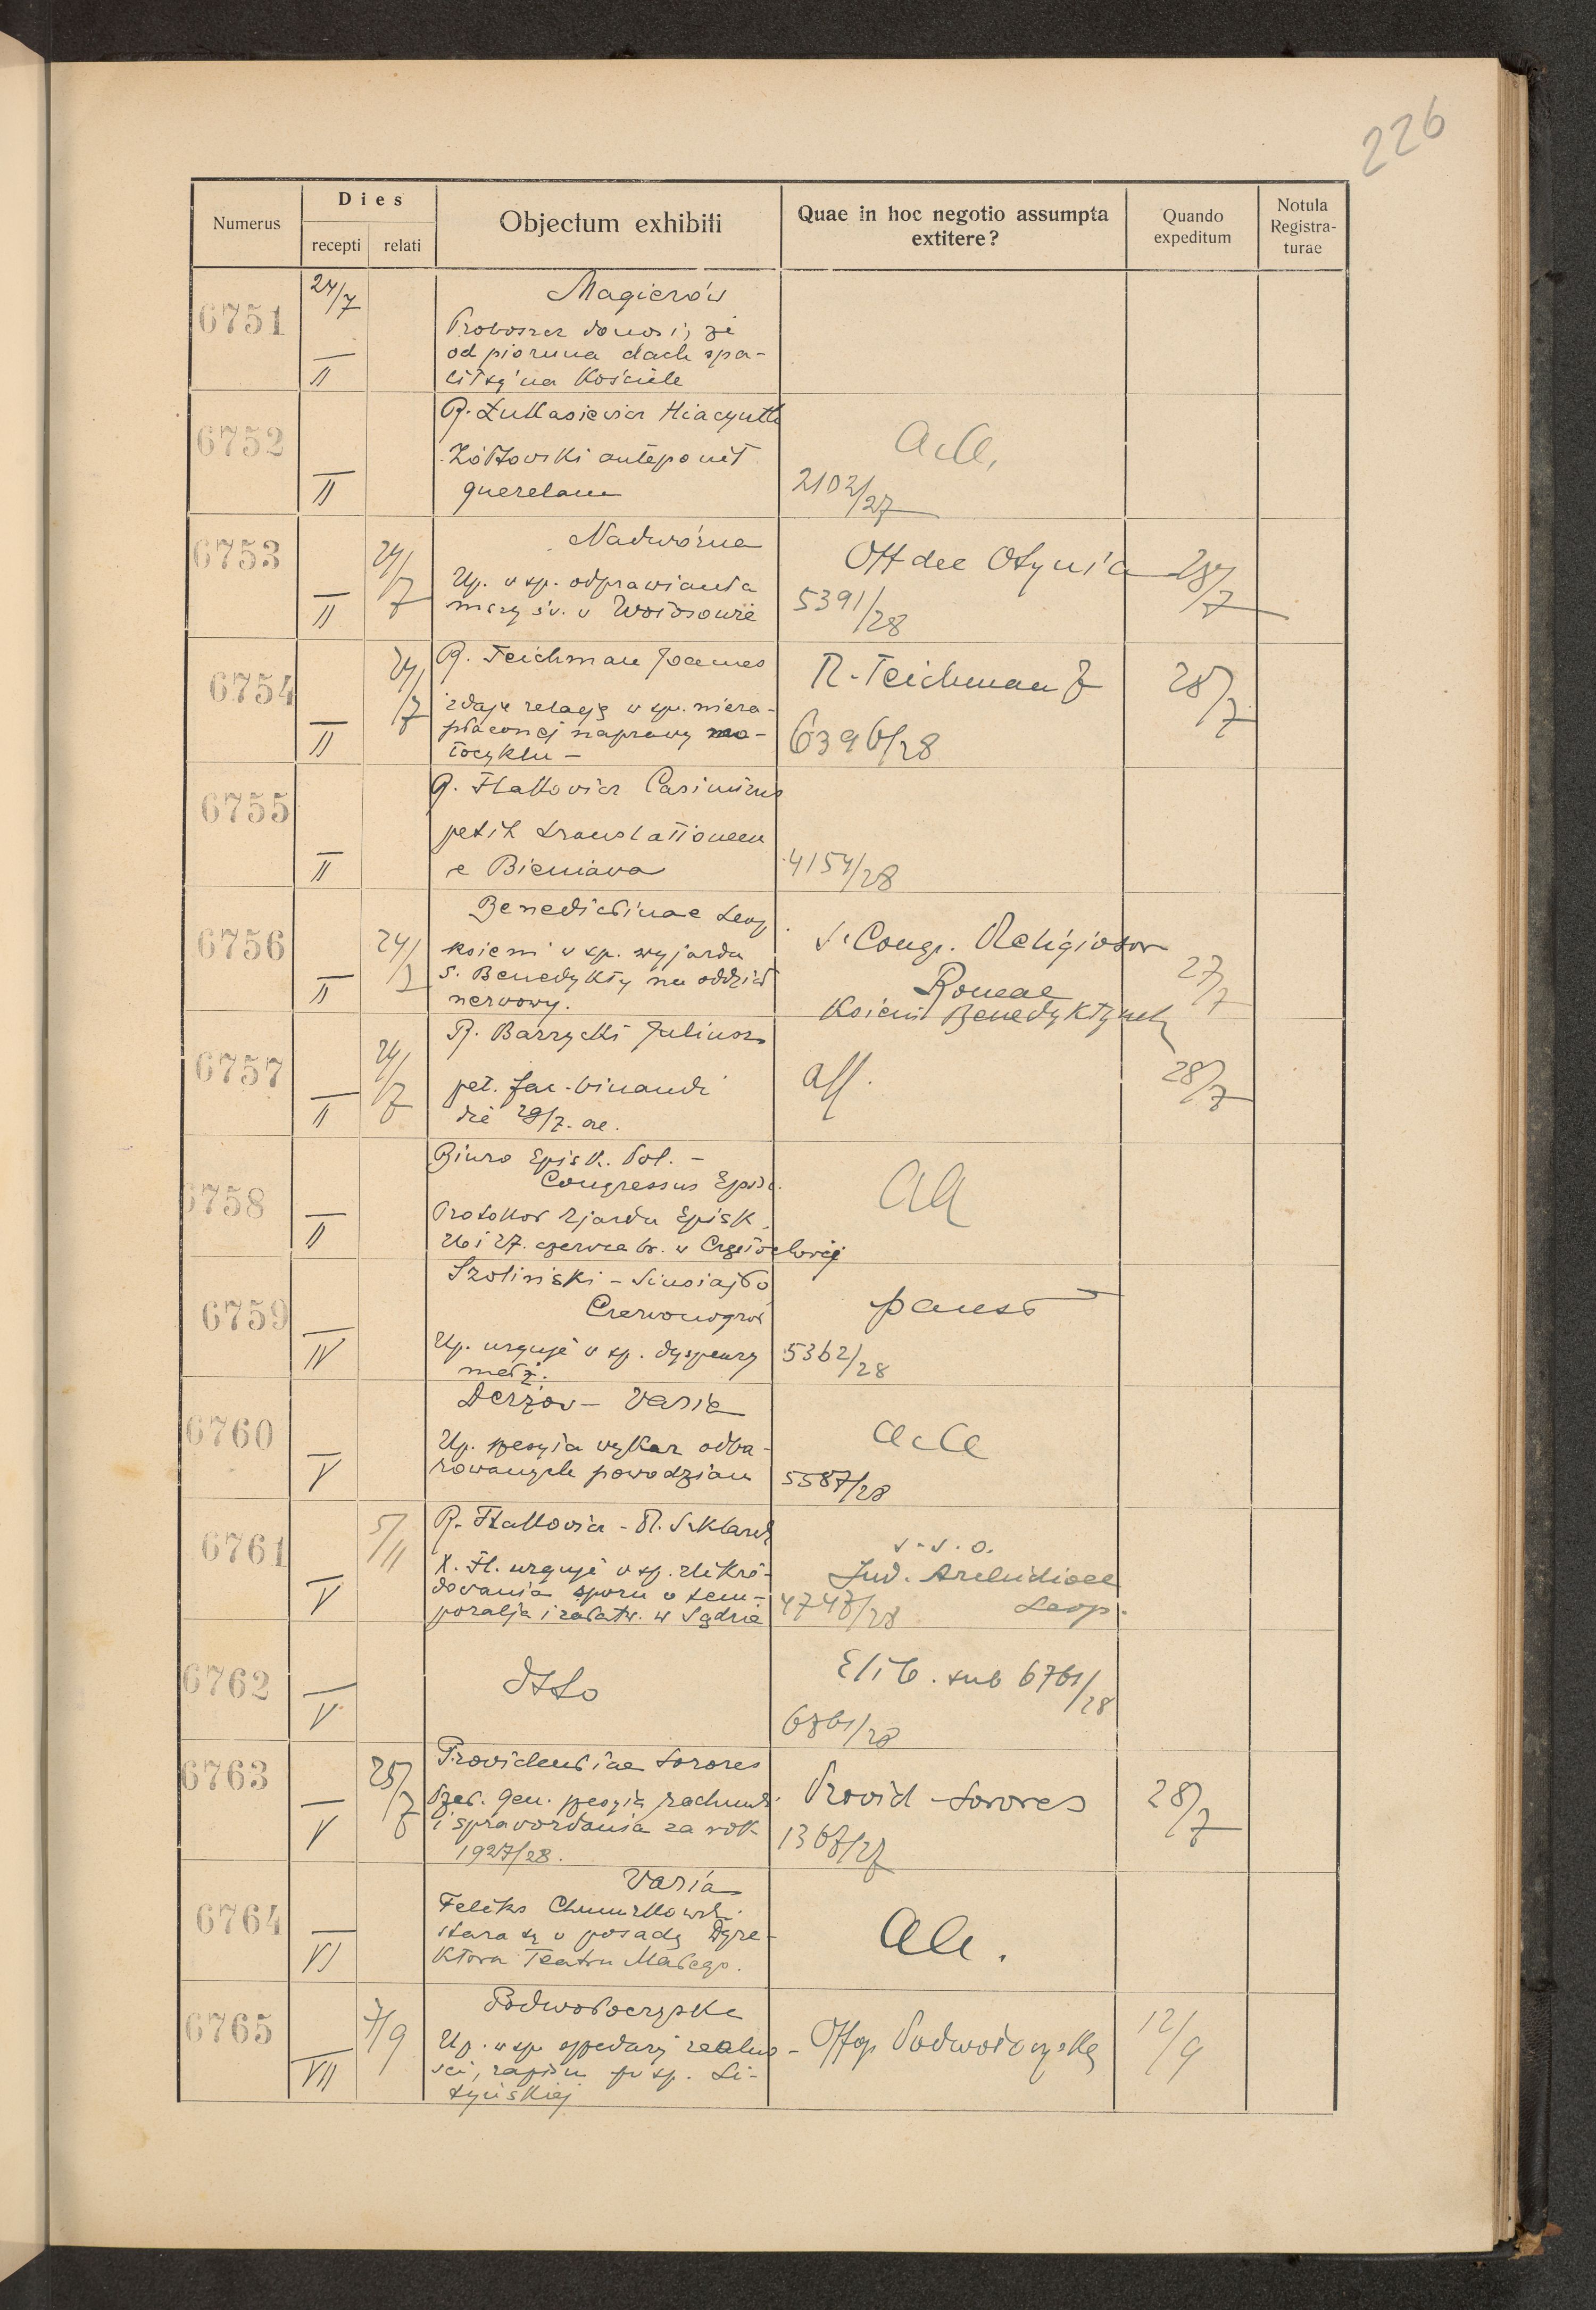 226
Numerus
Dies
recepti
relati
Objectum exhibiti
Quae in hoc negotio assumpta
extitere?
Quando
expeditum
Notula
Registra-
turae
6751
24/7
II
Magierów
Proboszcz donosi, że
od pioruna dach spa-
lił się na Kościele
6752
II
R. Łukasiewicz Hiacynth
Żółtowski anteponit
querelam
a.a.
2102/27
6753
II
24/7
Nadwórna
Up. w sp. odprawiania
mszy św. w
Off dec Otynia
5391/28
28/7
6754
II
24/7
R. Teichman Joannes
zdaje relację w sp. nieza-
płaconej naprawy mo-
tocyklu –
R. Teichman J
6396/28
28/7
6755
II
R. Casimirus
petit translationem
e Bieniawa
4154/28
6756
II
24/7
Benedictinae Leop
ksieni w sp. wyjazdu
s. Benedykty na oddział
nerwowy.
S. Congr. Religiosor
Romae
Ksieni Benedyktynek
27/7
6757
II
24/7
R. Juliusz
pet. fac. binandi
die 29/7. ae.
aff.
28/7
6758
II
Biuro Episk. Pol. –
Congressus Episc.
Protokół zjazdu Episk.
26 i 27. czerwca br. w Częstochowie
aa
6759
IV
Szoliński –
Czerwonogród
Up. urguje w sp. dyspenzy
małż.
5362/28
6760
V
Derżów – Varia
Up. przesyła wykaz obda-
rowanych powodzian
a.a
5587/28
6761
V
5/11
R. – R.
X. Fl. urguje w sp. zlikwi-
dowania sporu o tem-
poralja i załatw. w Sądzie
v. s. o.
Jud. Archidioec
Leop.
4747/28
6762
V
dtto
Elib. sub 6761/28
6761/28
6763
V
25/7
Providentiae Sorores
Przeł. Gen. przesyła rachunk.
i sprawozdania za rok
1927/28.
Provid Sorores
1367/27
28/7
6764
VI
Varia
Feliks
stara się o posadę Dyre-
ktora Teatru Małego.
aa.
6765
VII
7/9
Podwołoczyska
Up. w sp. sprzedaży realno-
ści, zapisu po śp. Li-
tyńskiej
Offp. Podwołoczyska
12/9